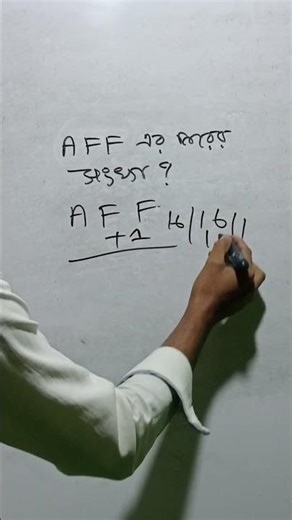 AFF এর পরের
সংখ্যা ?
A F F 16|16|1
+1 1